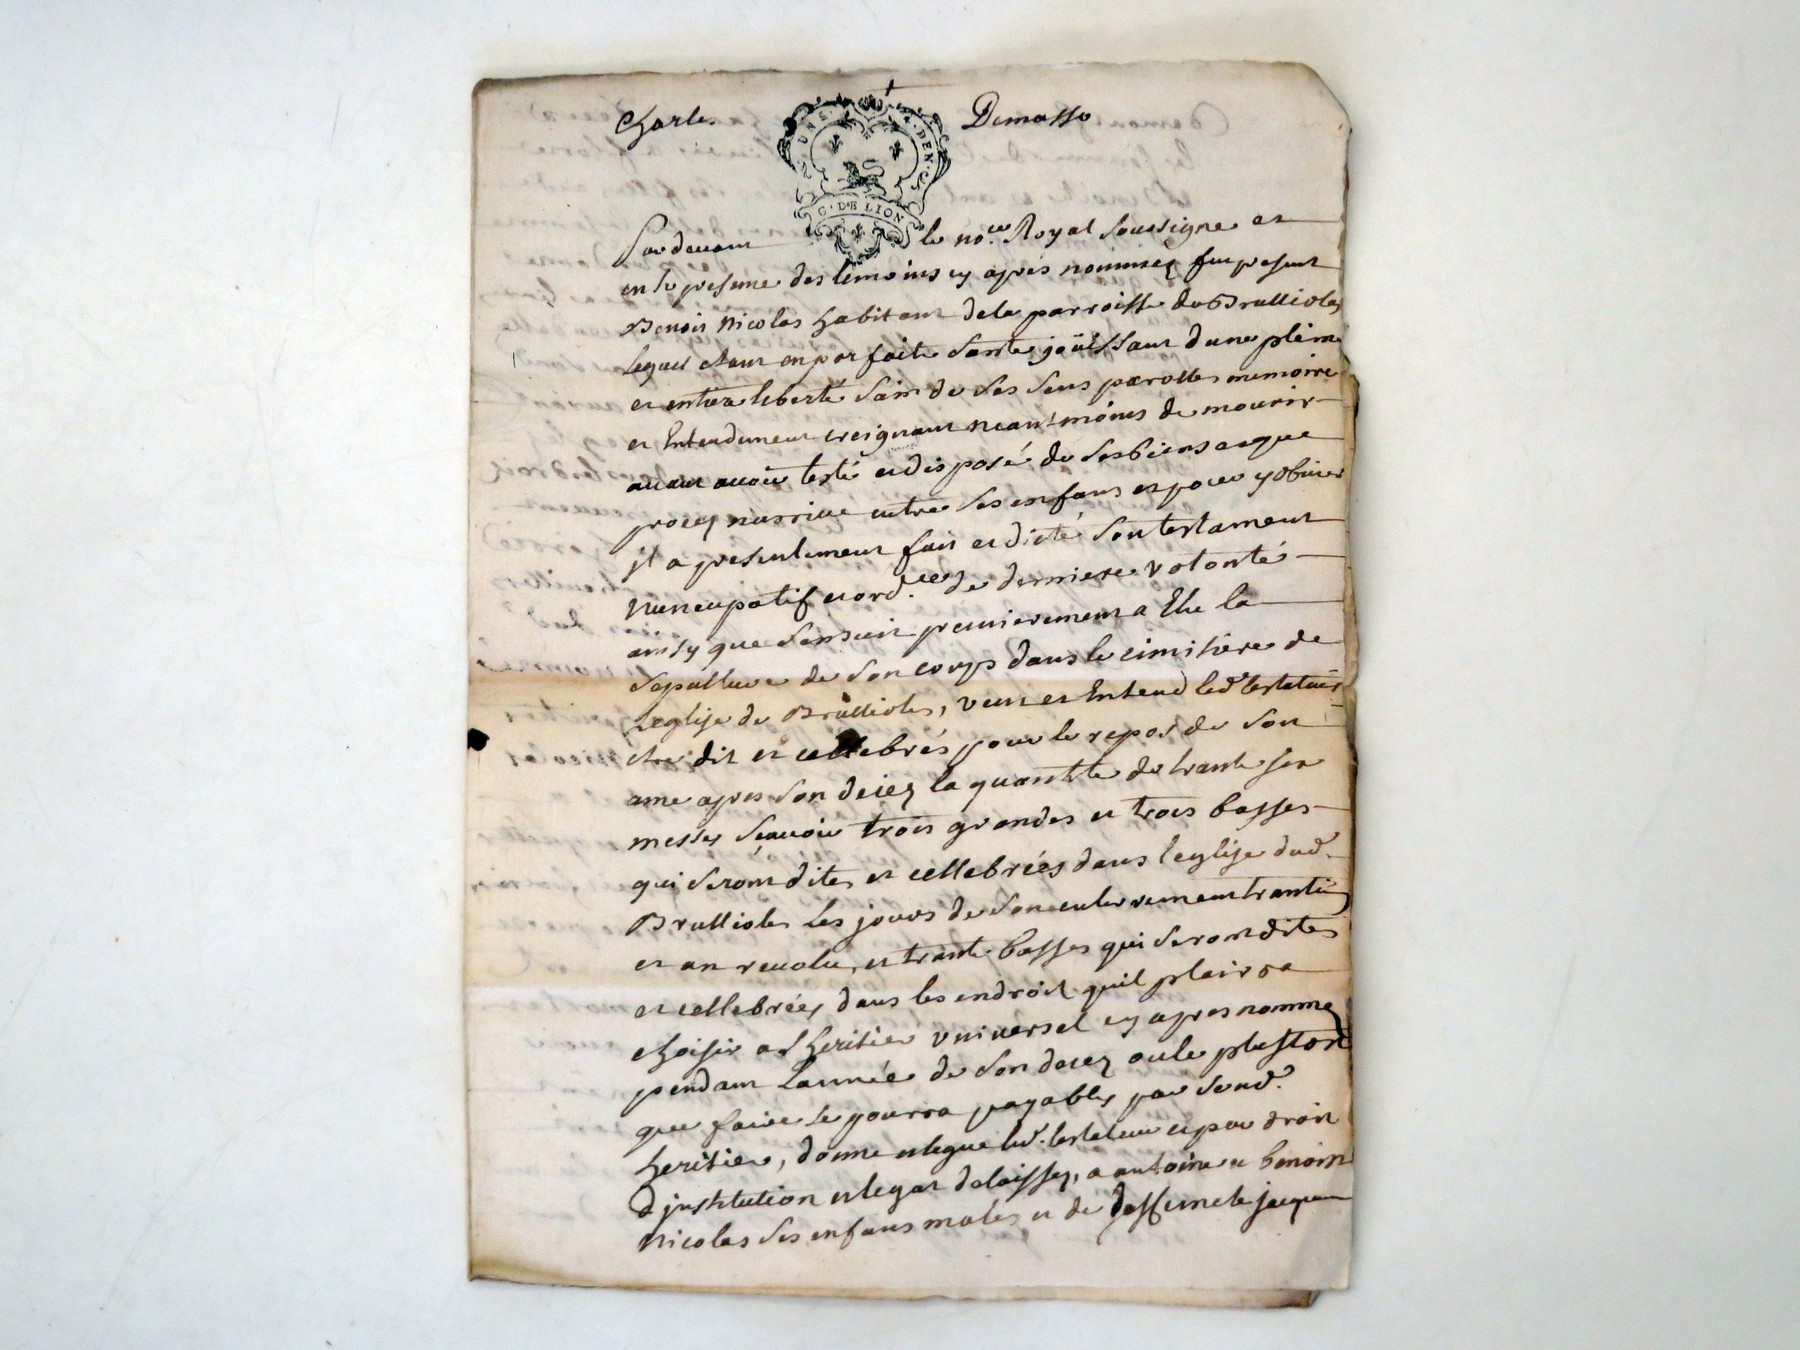 Charles Demasso
UNS. DEN.
G. DE LION
Pardevant le no.re Royal soussigne et
en la presence des temoins cy apres nommez fut present
Benoit Nicolas habitant de la parroisse de Brullioles
lequel etant en parfaite santé joüissant d'une pleine
et entiere liberté sain de ses sens parolles memoire
et Entendement creignant neantmoins de mourir
avant avoir testé et disposé de ses biens et que
procez narrive entre ses enfans et pour y obvier
jl a presentement fait et dicté son testament
nuncupatif et ord.ce de derniere volonté
ainsy que sensuit premierement a Elu la
sepulture de son corps dans le cimitiere de
leglise de Brullioles, veut et Entend led. testateur
etre dit et cellebrés pour le repos de son
ame apres son decez la quantité de trante six
messes sçavoir trois grandes et trois basses
qui seront dites et cellebrées dans leglise dud.
Brullioles les jours de son enterrement trantin
et an revolu, et trante basses qui seront dites
et cellebrées dans les endroit quil plairra
choisir a s heritier universel cy apres nommé
pendant Lannée de son decez ou le plustost
que faire se pourra payables par sond.
heritier, donne et legue led. testateur et par droit
d'justitution et legat delaisse, a antoine et benoist
Nicolas ses enfans males et de deffuncte jacqueme